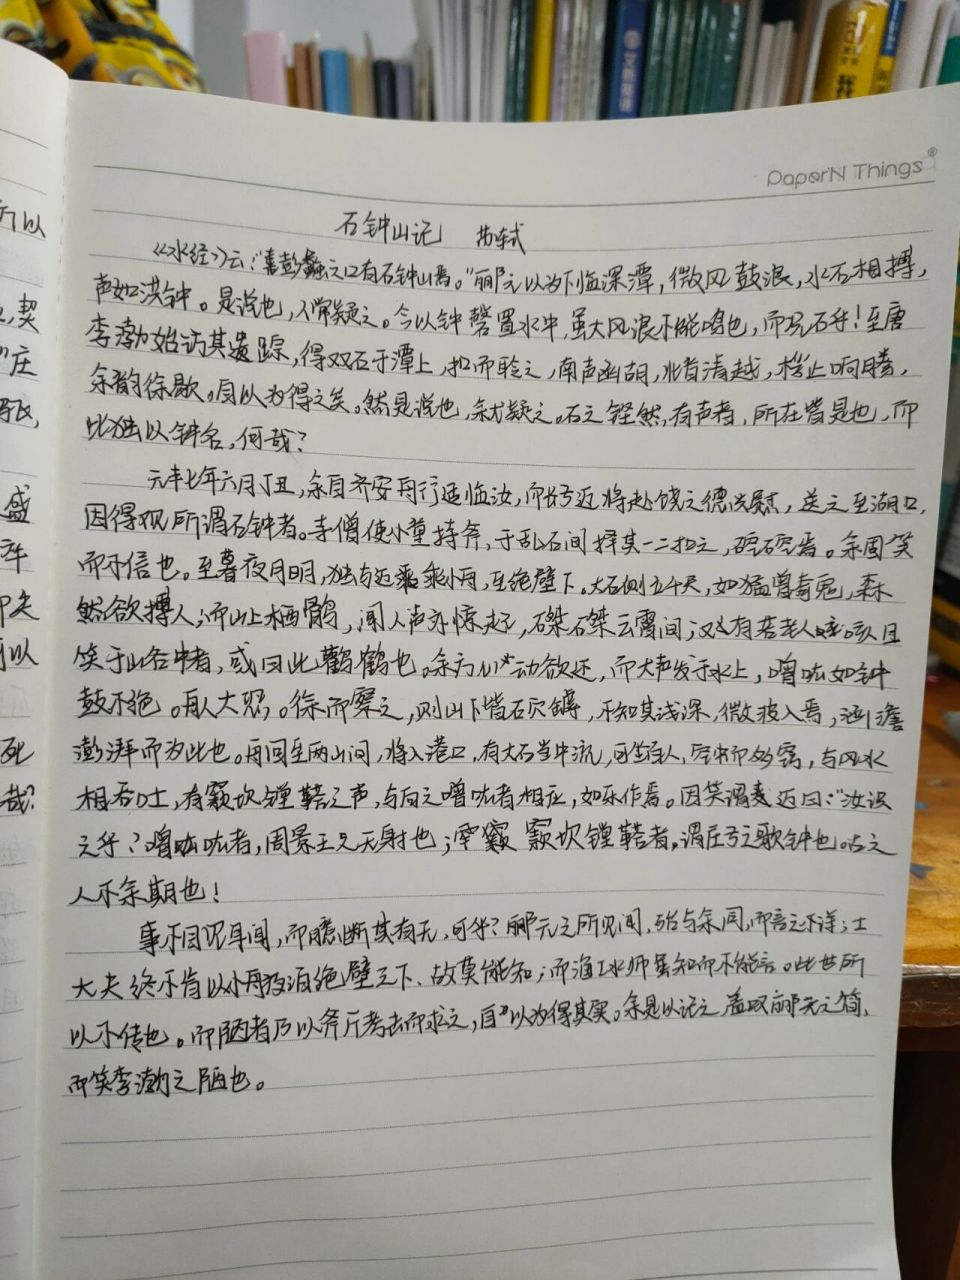 PaperN Things®
石钟山记 苏轼
《水经》云:“喜彭蠡之口有石钟山焉。”郦元以为下临深潭,微风鼓浪,水石相搏,
声如洪钟。是说也,人常疑之。今以钟磬置水中,虽大风浪不能鸣也,而况石乎!至唐
李渤始访其遗踪,得双石于潭上,扣而聆之,南声函胡,北音清越,桴止响腾,
余韵徐歇。自以为得之矣。然是说也,余尤疑之。石之铿然,有声者,所在皆是也,而
此独以钟名,何哉?
元丰七年六月丁丑,余自齐安舟行适临汝,而长子迈将赴饶之德兴尉,送之至湖口,
因得观所谓石钟者。寺僧使小童持斧,于乱石间择其一二扣之,硿硿焉。余固笑
而不信也。至暮夜月明,独与迈乘舟,至绝壁下。大石侧立千尺,如猛兽奇鬼,森
然欲搏人;而山上栖鹘,闻人声亦惊起,磔磔云霄间;又有若老人咳且
笑于山谷中者,或曰此鹳鹤也。余方心动欲还,而大声发于水上,噌吰如钟
鼓不绝。舟人大恐。徐而察之,则山下皆石穴罅,不知其浅深,微波入焉,涵澹
澎湃而为此也。舟回至两山间,将入港口,有大石当中流,可坐百人,空中而多窍,与风水
相吞吐,有窾坎镗鞳之声,与向之噌吰者相应,如乐作焉。因笑谓迈曰:“汝识
之乎?噌吰者,周景王之无射也;窾坎镗鞳者,谓庄子之歌钟也。古之
人不余欺也!
事不目见耳闻,而臆断其有无,可乎?郦元之所见闻,殆与余同,而言之不详;士
大夫终不肯以小舟夜泊绝壁之下,故莫能知;而渔工水师虽知而不能言。此世所
以不传也。而陋者乃以斧斤考击而求之,自以为得其实。余是以记之,盖叹郦元之简,
而笑李渤之陋也。
所以
契
庄
死,
盛
年
以
死
哉?